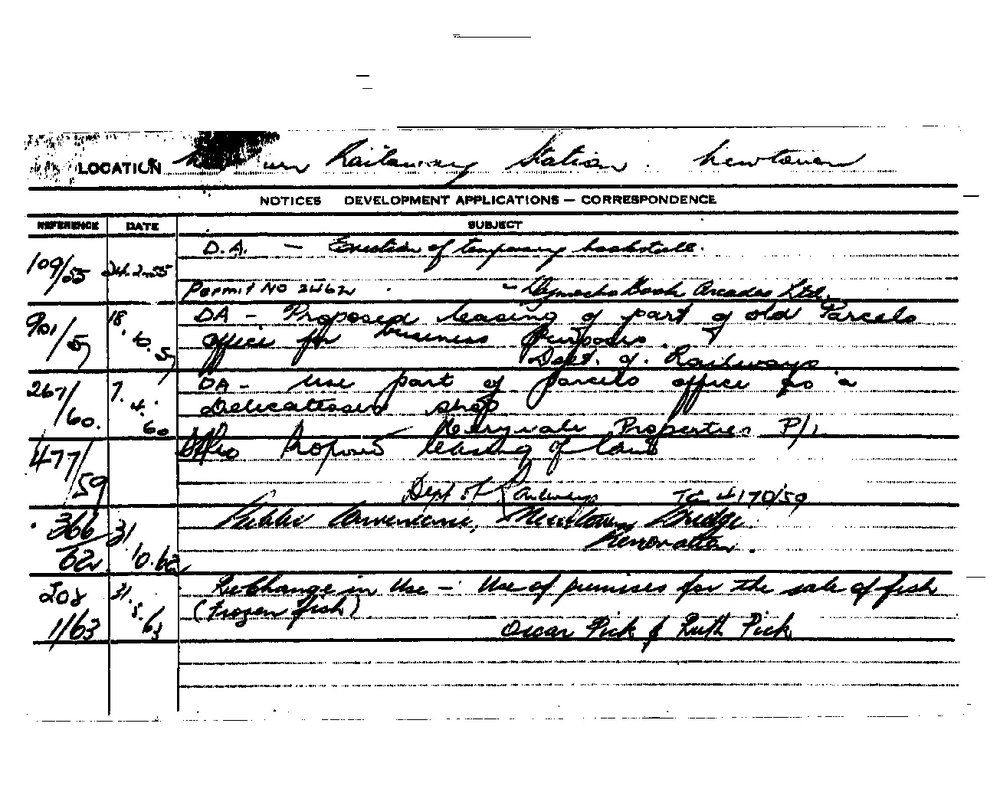 LOCATION Railway Station . Newtown
NOTICES DEVELOPMENT APPLICATIONS — CORRESPONDENCE
REFERENCE DATE SUBJECT
109/55 24.2.55 D.A. — Erection of temporary bookstall.
Permit No 2462 - Dymocks Book Arcades Ltd.
901/57 18.10.57 DA - Proposed leasing of part of old Parcels
office for business purposes.
Dept. of Railways
267/60. 7.4.60 DA - Use part of parcels office as a
Delicatessen shop
Properties P/L
477/59 leasing of land
Dept of Railways T.C. 4170/59
366/62 31.10.62 Public Convenience, Newtown Bridge
Renovation.
208 31.5.63 Re Change in Use - Use of premises for the sale of fish
1/63 (Frozen fish).
Oscar Pick & Ruth Pick